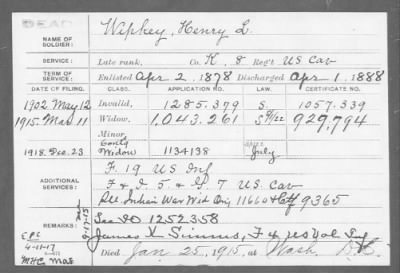 DEAD
NAME OF SOLDIER: Wipkey, Henry L.
SERVICE: Late rank, Co. K, 8 Reg't US Cav
TERM OF SERVICE: Enlisted Apr 2, 1878 Discharged Apr 1, 1888
DATE OF FILING. CLASS. APPLICATION NO. LAW. CERTIFICATE NO.
1902 May 12 Invalid, 1285.379 S. 1057.339
1915. Mar 11 Widow, 1,043.261 929,794
Minor,
1918. Dec. 23 Contg Widow 1134138 July
ADDITIONAL SERVICES: F. 19 US Inf
F & I. 5 & G. 7 US Cav
Indian War Wid Orig 11660 Ctf 9365
REMARKS: See IO 1252358
James V. Simms, F 4 US Vol Inf
4-11-17
Died Jan 25, 1915, at Wash. D.C.